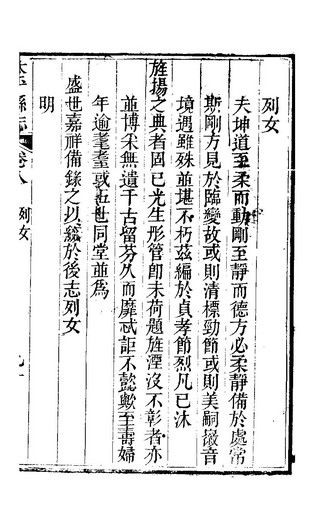 列女
夫坤道至柔而動剛至靜而德方必柔靜備於處常
斯剛方見於臨變故或則清標勁節或則美嗣徽音
境遇雖殊並堪不朽茲編於貞孝節烈凡已沐
旌揚之典者固已光生彤管即未荷題旌湮沒不彰者亦
並博采無遺千古留芬久而靡忒詎不懿歟至壽婦
年逾耄耋或五世同堂並為
盛世嘉祥備錄之以綴於後志列女
明
縣志
卷八
列女